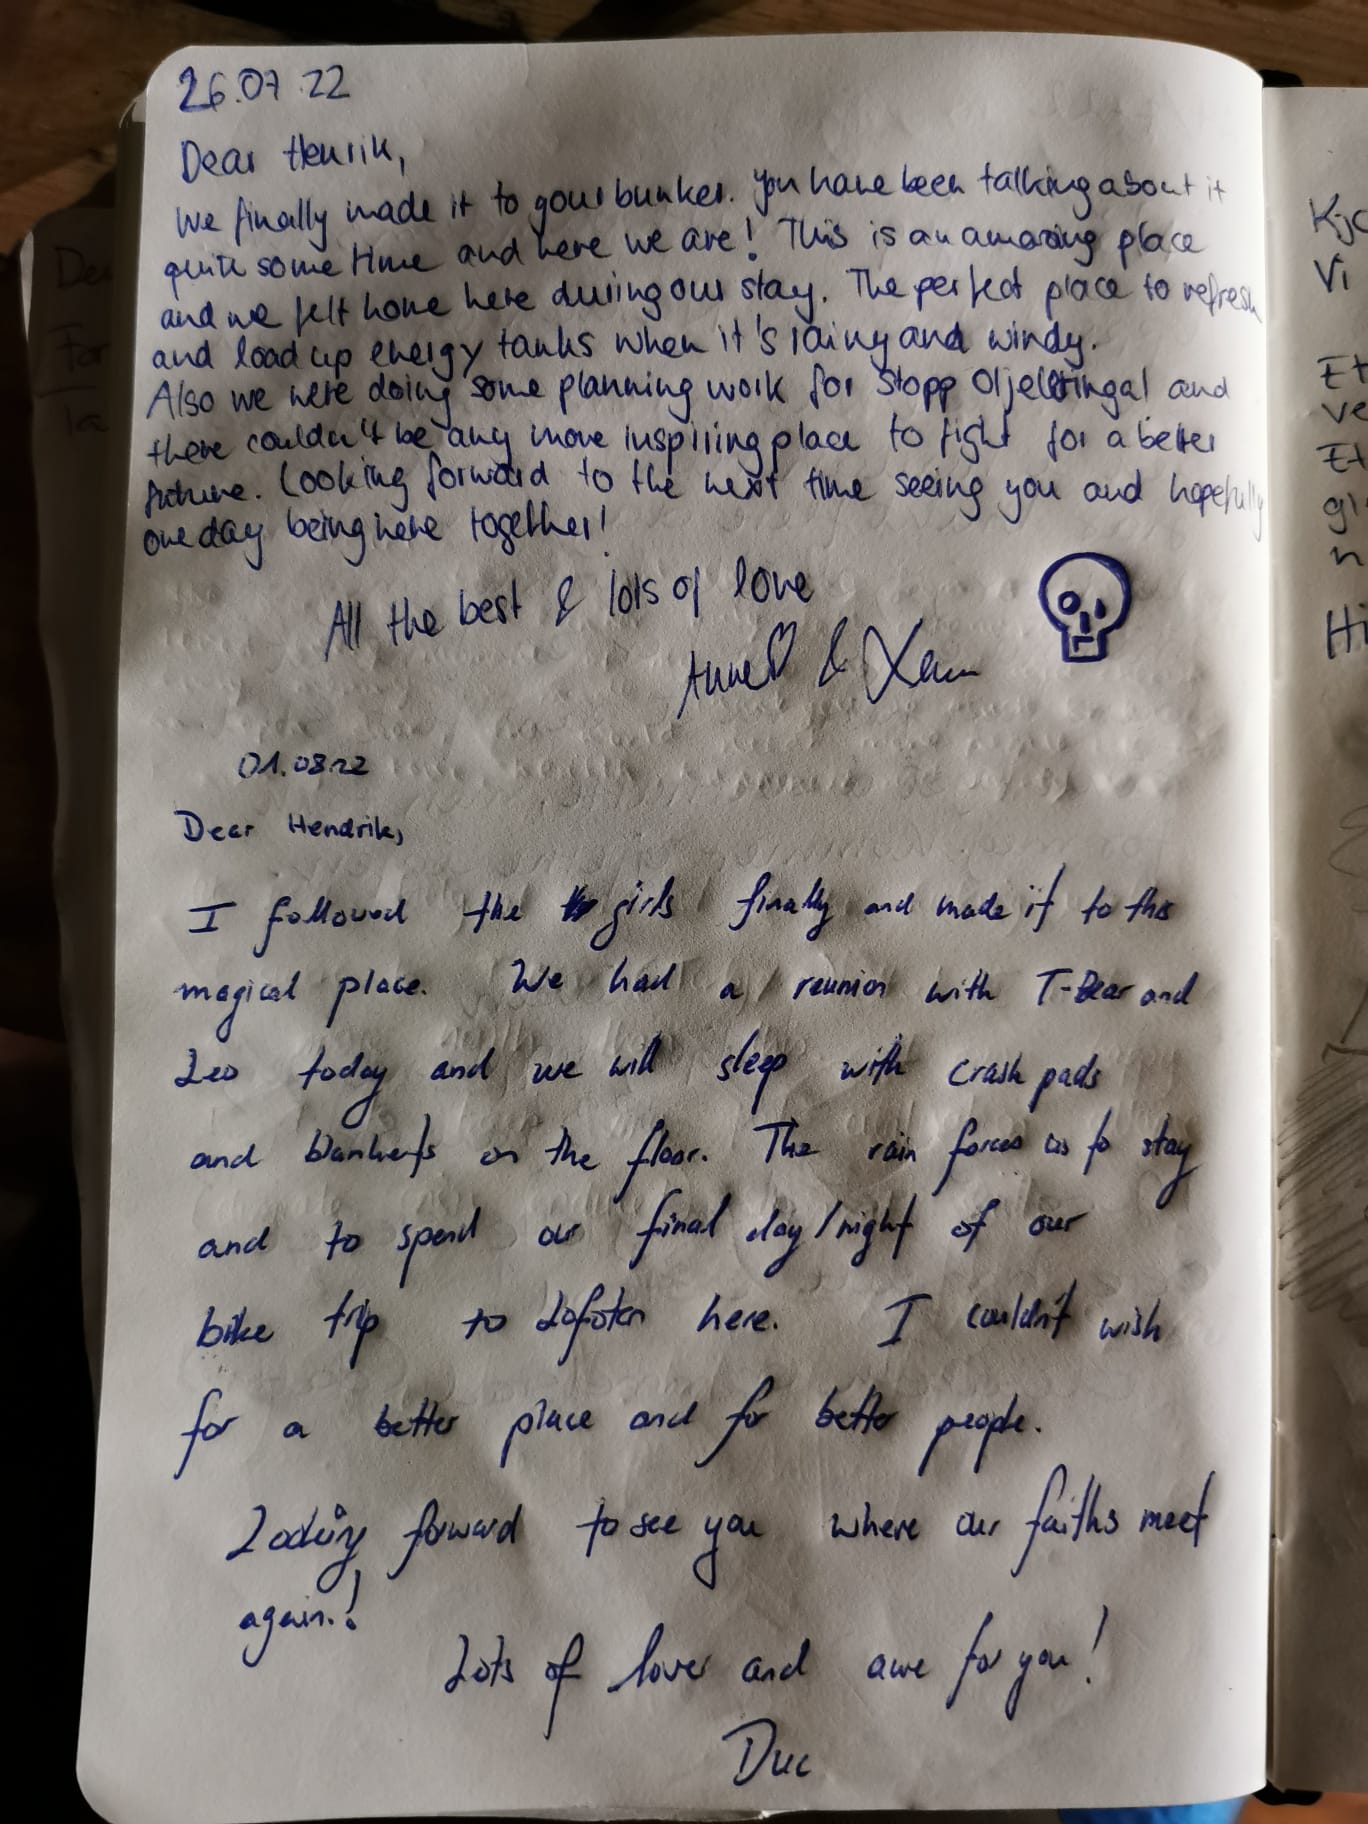 26.07.22
Dear Henrik,
we finally made it to your bunker. You have been talking about it
quite some time and here we are! This is an amazing place
and we felt home here during our stay. The perfect place to refresh
and load up energy tanks when it's rainy and windy.
Also we were doing some planning work for Stopp Oljeletinga! and
there couldn't be any more inspiring place to fight for a better
future. Looking forward to the next time seeing you and hopefully
one day being here together!
All the best & lots of love
Anne &
01.08.22
Dear Hendrik,
I followed the girls finally and made it to this
magical place. We had a reunion with T-Bear and
Leo today and we will sleep with crash pads
and blankets on the floor. The rain forces us to stay
and to spend our final day/night of our
bike trip to Lofoten here. I couldn't wish
for a better place and for better people.
Looking forward to see you where our faiths meet
again!
Lots of love and awe for you!
Duc
Vi
Et
ve
Et
Hi